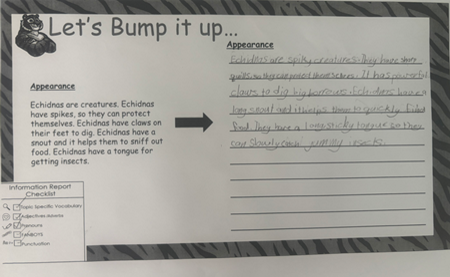 Let's Bump it up...
Appearance
Echidnas are creatures. Echidnas
have spikes, so they can protect
themselves. Echidnas have claws on
their feet to dig. Echidnas have a
snout and it helps them to sniff out
food. Echidnas have a tongue for
getting insects.
Information Report
Checklist
Topic Specific Vocabulary
Adjectives
Pronouns
Punctuation
Appearance
Echidnas are spiky creatures. They have
spikes so they can protect themselves. It has powerful
claws to dig big burrows. Echidnas have a
long snout and it helps them to quickly find
food. They have a long sticky tongue so they
can slowly catch yummy insects.